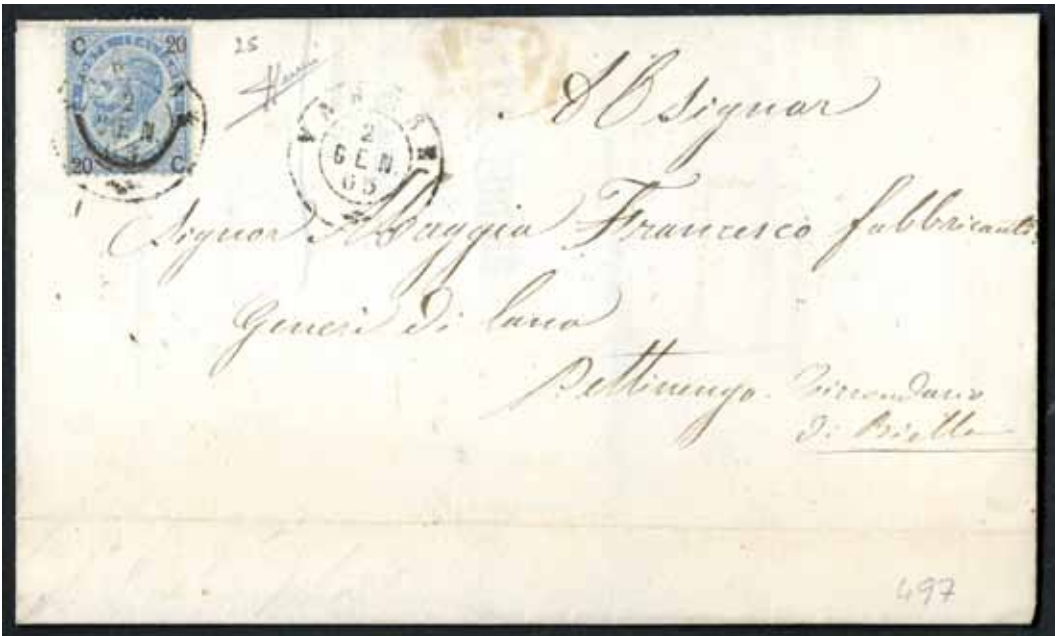 C 20
20 C
25
2
GEN.
65
Al Signor
Signor Maggia Francesco fabbricante
Generi di lana
Pettinengo. Circondario
di Biella
497